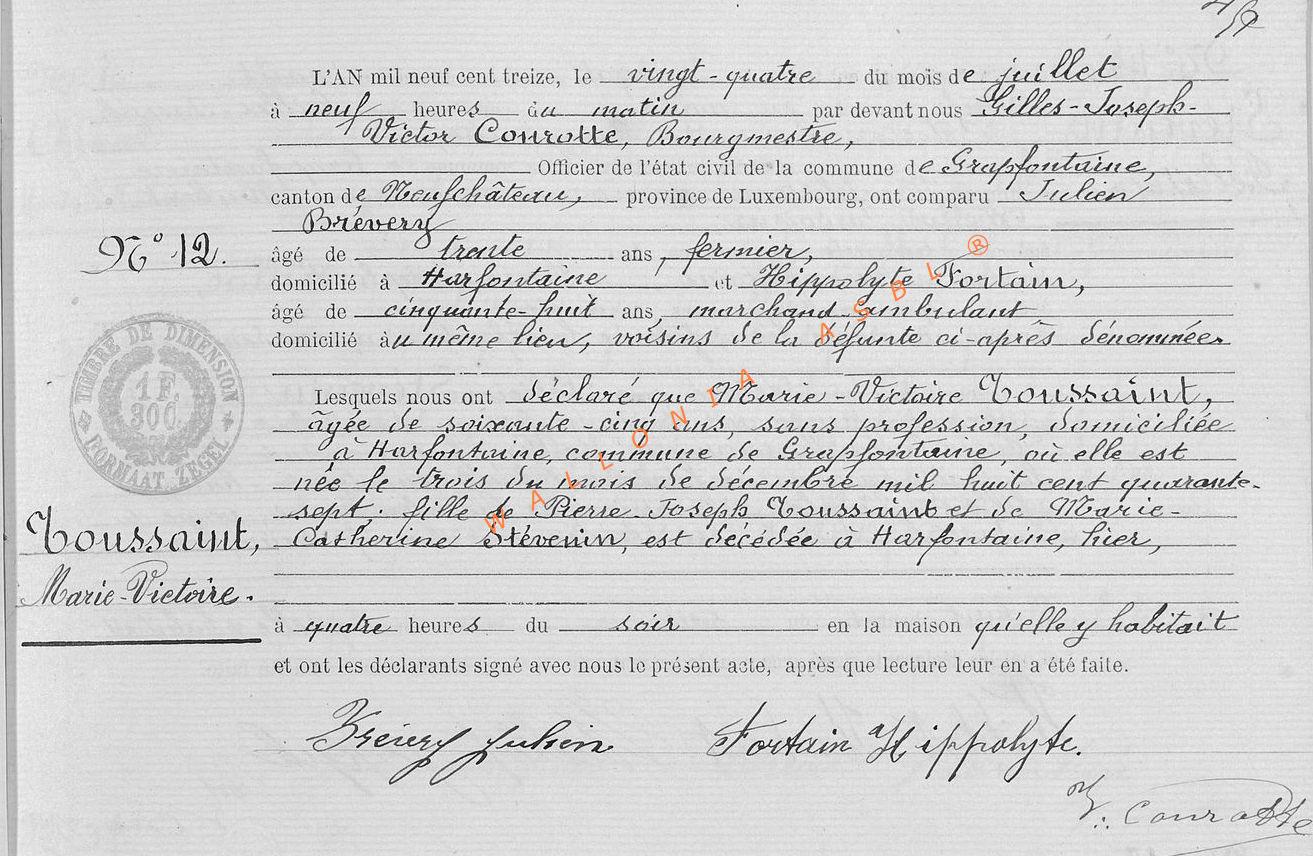 L'AN mil neuf cent treize, le vingt-quatre du mois de juillet
à neuf heures du matin par devant nous Gilles-Joseph-
Victor Conrotte, Bourgmestre,
Officier de l'état civil de la commune de Grapfontaine,
canton de Neufchâteau, province de Luxembourg, ont comparu Julien
Brévery
N° 12.
âgé de trente ans, fermier,
domicilié à Harfontaine et Hippolyte Fortain,
âgé de cinquante-huit ans, marchand ambulant
domicilié au même lieu, voisins de la défunte ci-après dénommée
TIMBRE DE DIMENSION
1 F.
30C.
FORMAAT ZEGEL
Lesquels nous ont déclaré que Marie-Victoire Toussaint,
âgée de soixante-cinq ans, sans profession, domiciliée
à Harfontaine, commune de Grapfontaine, où elle est
née le trois du mois de décembre mil huit cent quarante-
sept, fille de Pierre Joseph Toussaint et de Marie-
Catherine Stévenin, est décédée à Harfontaine, hier,
Toussaint,
Marie-Victoire.
à quatre heures du soir en la maison qu'elle y habitait
et ont les déclarants signé avec nous le présent acte, après que lecture leur en a été faite.
Brévery Julien Fortain Hippolyte.
V. Conrotte
WALLONIA ASBL ®